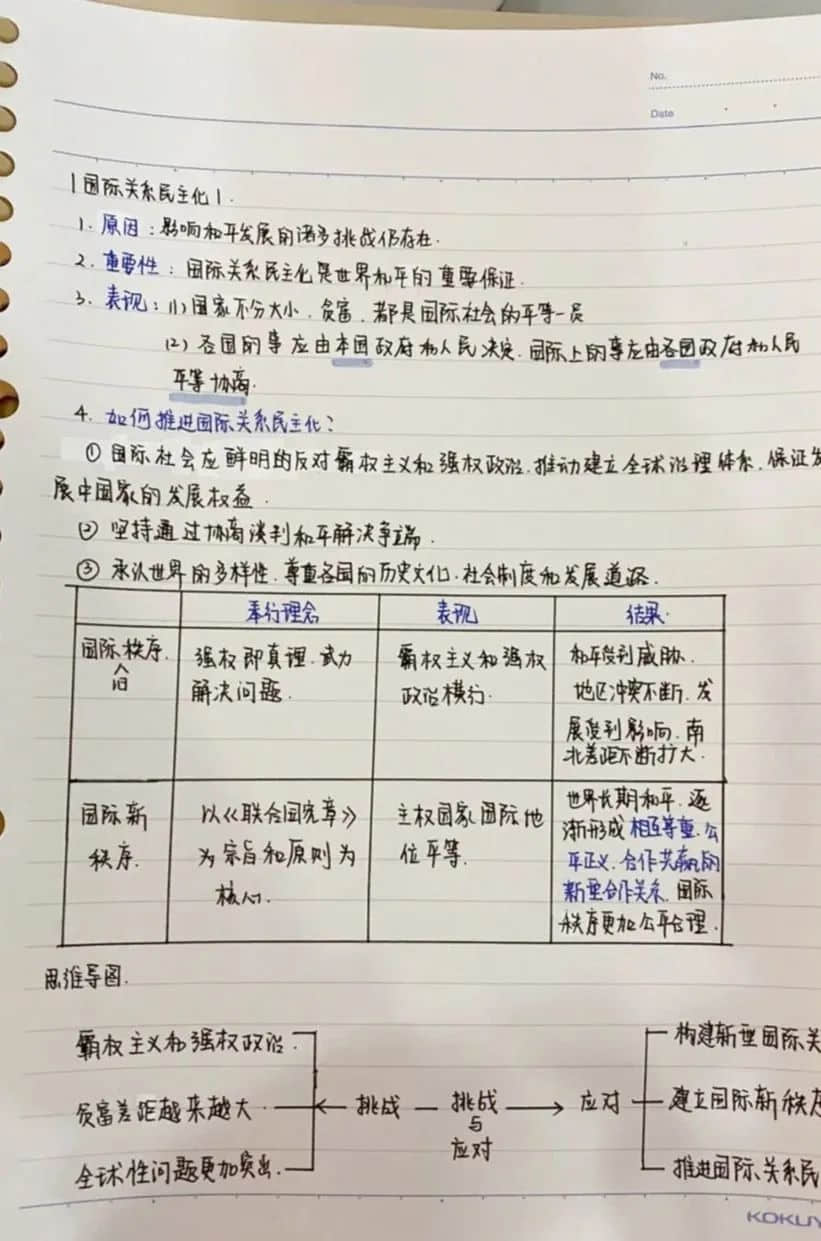 No.
Date
|国际关系民主化|.
1. 原因：影响和平发展的诸多挑战仍存在.
2. 重要性：国际关系民主化是世界和平的重要保证.
3. 表现：(1) 国家不分大小、贫富、都是国际社会的平等一员
(2) 各国的事应由本国政府和人民决定、国际上的事应由各国政府和人民
平等协商.
4. 如何推进国际关系民主化？
① 国际社会应鲜明的反对霸权主义和强权政治、推动建立全球治理体系、保证发
展中国家的发展权益.
② 坚持通过协商谈判和平解决争端.
③ 承认世界的多样性、尊重各国的历史文化、社会制度和发展道路.
奉行理念 表现 结果.
国际秩序.
旧
强权即真理、武力
解决问题.
霸权主义和强权
政治横行.
和平受到威胁.
地区冲突不断、发
展受到影响、南
北差距不断扩大.
国际新
秩序.
以《联合国宪章》
为宗旨和原则为
核心.
主权国家国际地
位平等.
世界长期和平、逐
渐形成相互尊重、公
平正义、合作共赢的
新型合作关系、国际
秩序更加公平合理.
思维导图.
霸权主义和强权政治.
贫富差距越来越大.
全球性问题更加突出.
挑战
挑战
与
应对
应对
构建新型国际关
建立国际新秩序
推进国际关系民
KOKUY